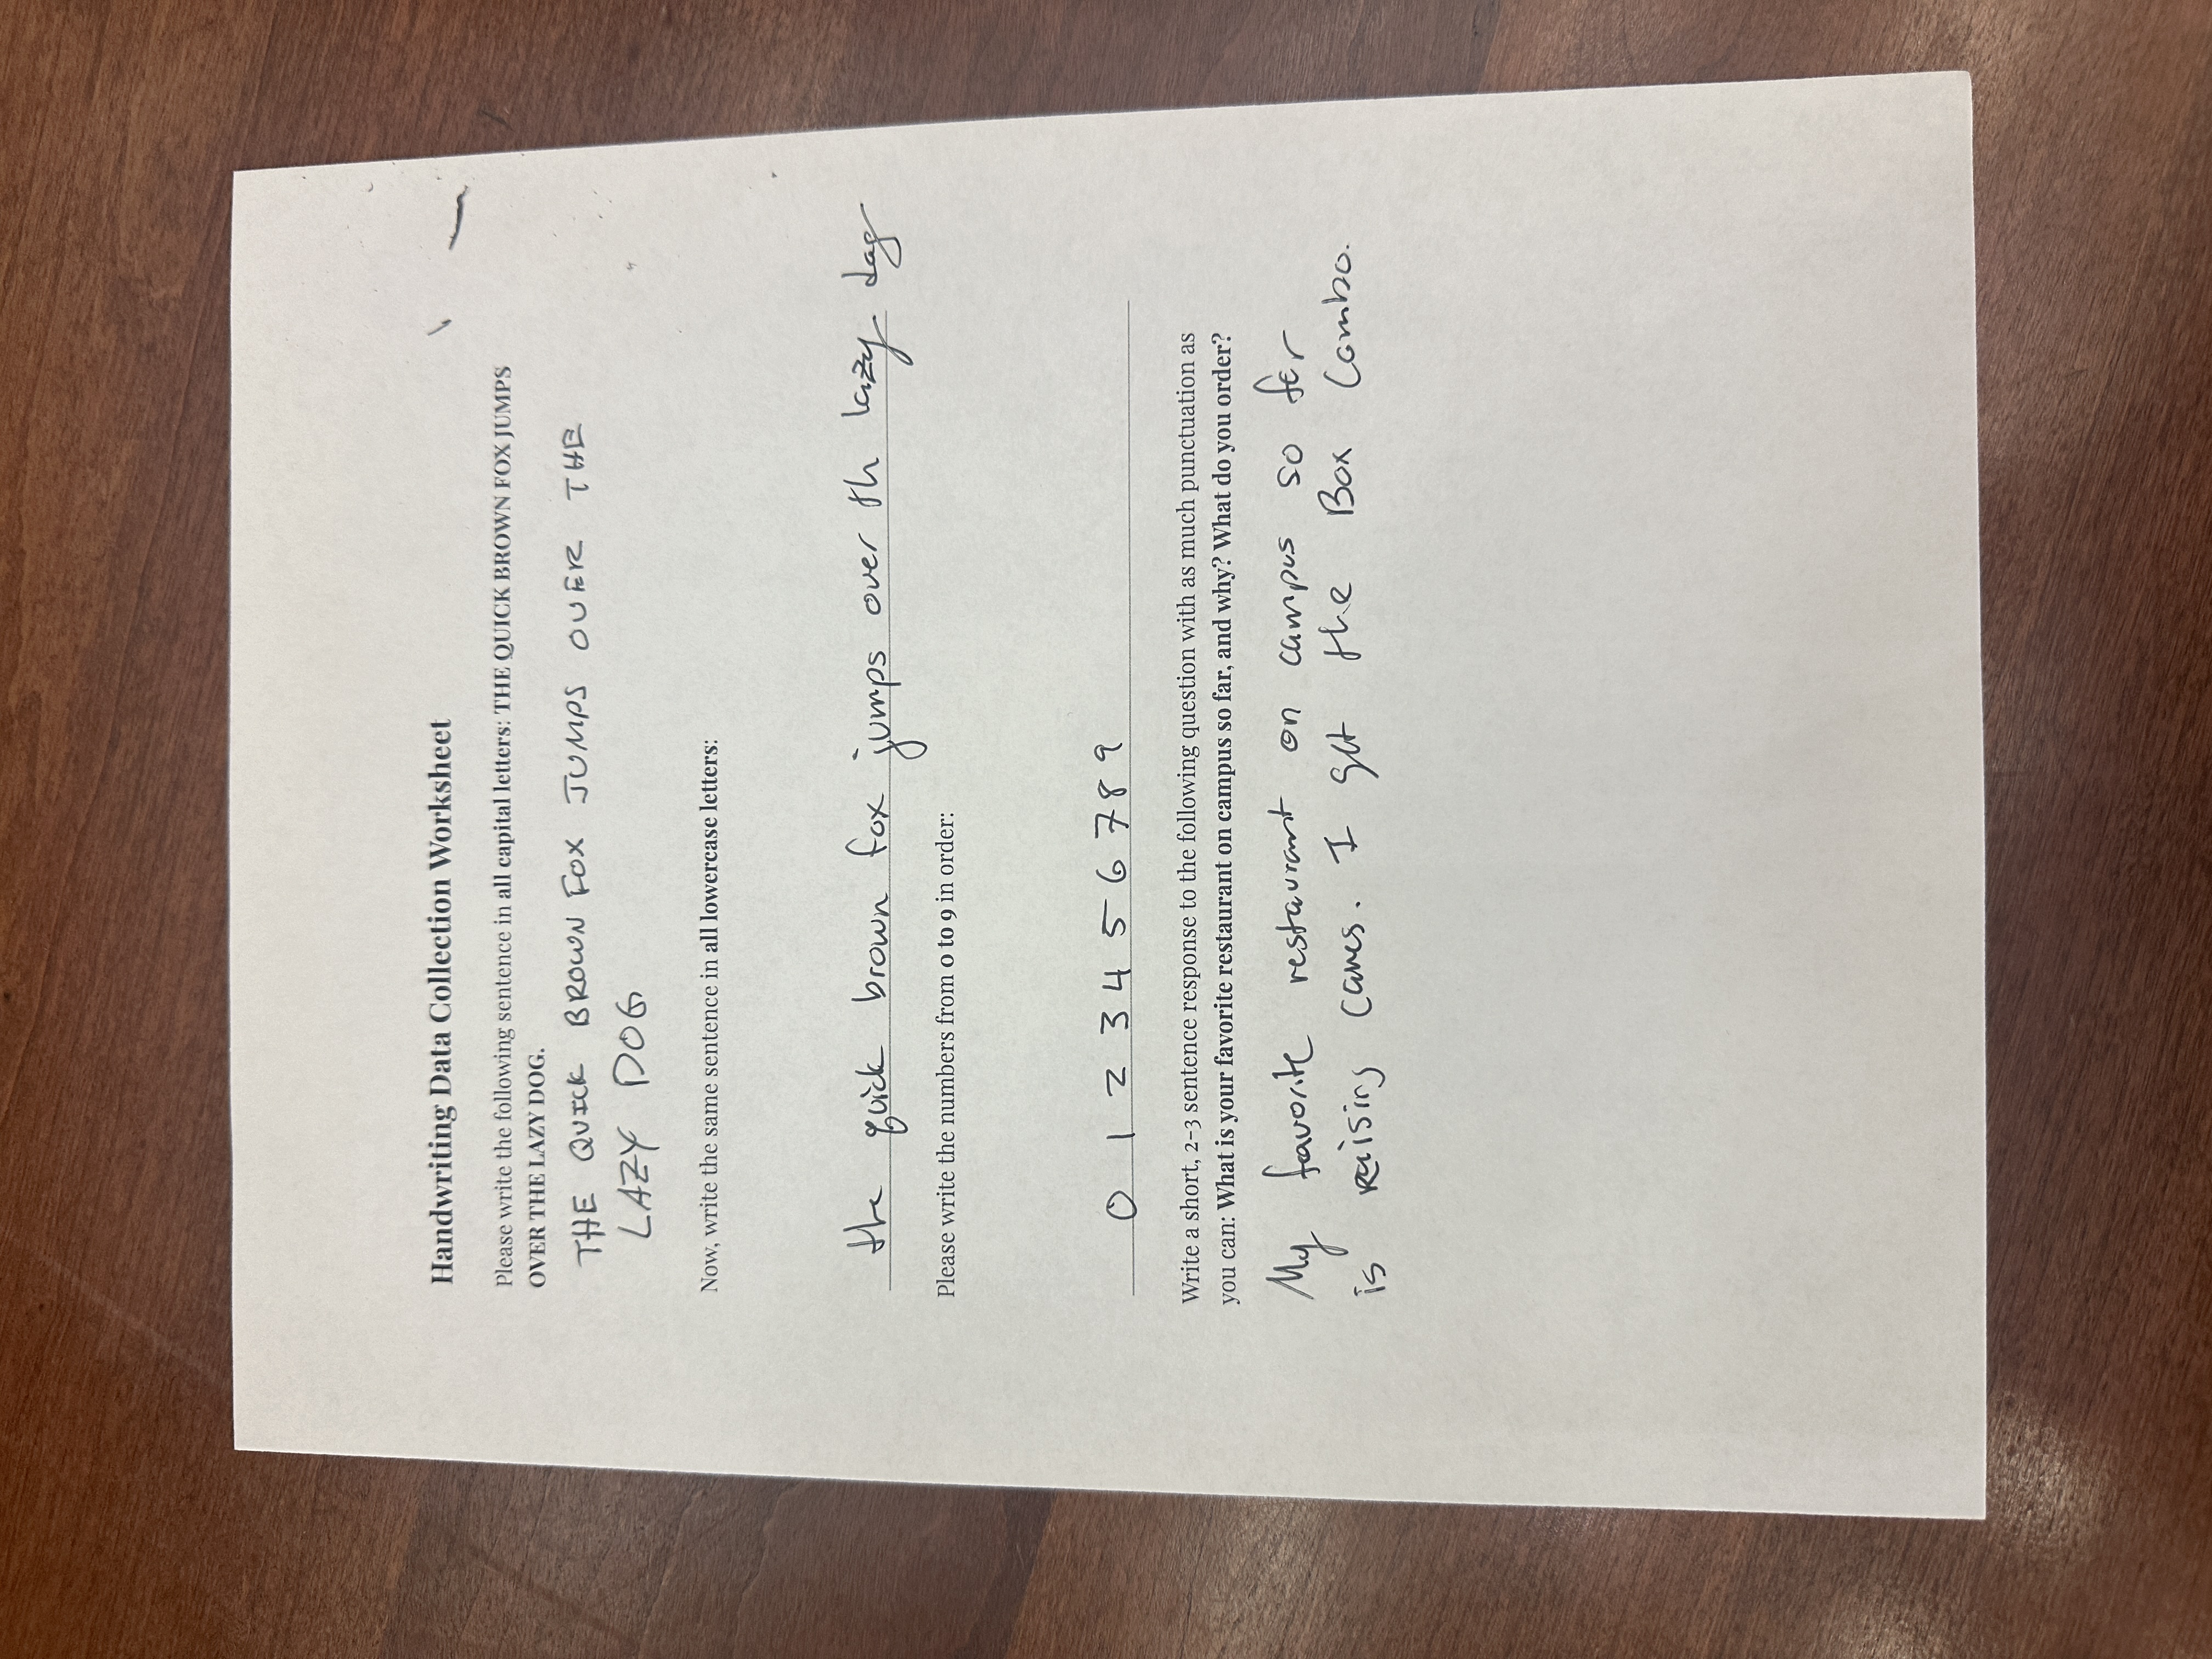 Handwriting Data Collection Worksheet
Please write the following sentence in all capital letters: THE QUICK BROWN FOX JUMPS
OVER THE LAZY DOG.
THE QUICK BROWN FOX JUMPS OVER THE
LAZY DOG
Now, write the same sentence in all lowercase letters:
the quick brown fox jumps over th lazy dog
Please write the numbers from 0 to 9 in order:
0 1 2 3 4 5 6 7 8 9
Write a short, 2-3 sentence response to the following question with as much punctuation as
you can: What is your favorite restaurant on campus so far, and why? What do you order?
My favorite restaurant on campus so far
is Raising canes. I get the Box Combo.